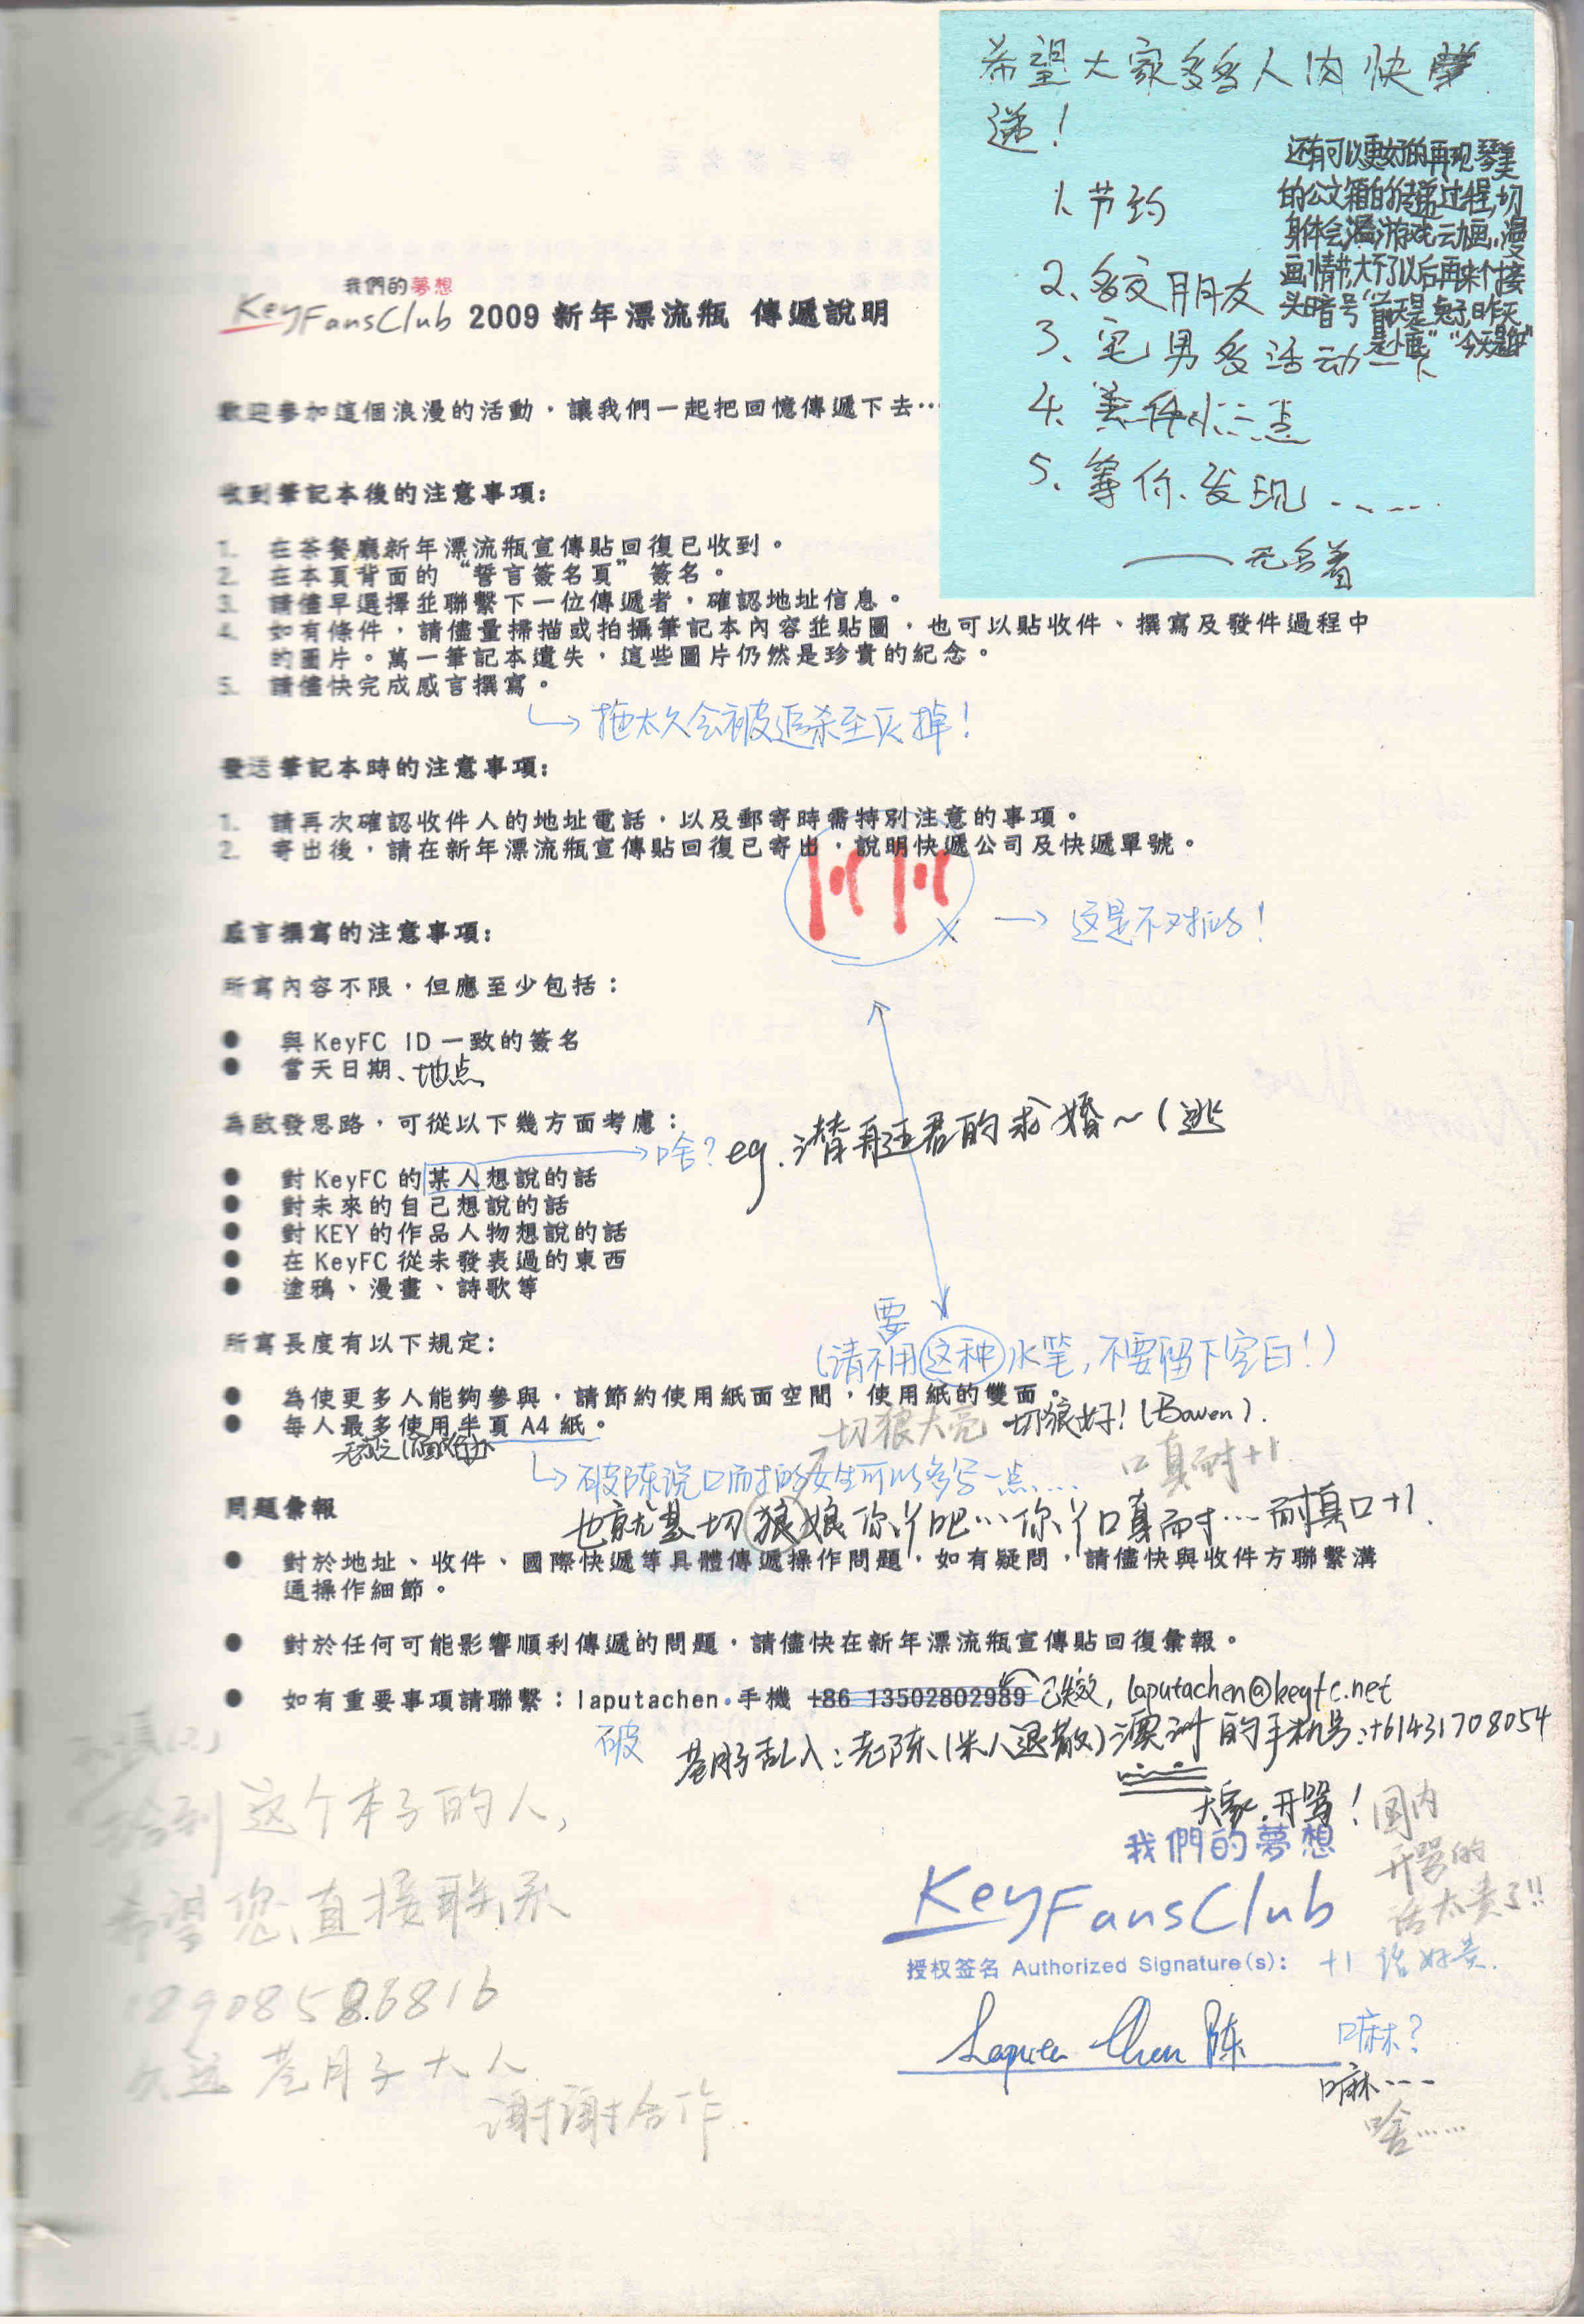 希望大家多多人肉快
递！
1、节约
2、多交朋友
3、宅男多活动一下
4、
5、等你发现……
——无名着
还有可以更好的再现琴美
的公文箱的传递过程,切
身体会漫游戏、动画、漫
画情节,大不了以后再来个接
头暗号“前天是兔子,昨天
是小鹿”“今天是你”
我們的夢想
KeyFansClub 2009 新年漂流瓶 傳遞說明
歡迎參加這個浪漫的活動，讓我們一起把回憶傳遞下去…
收到筆記本後的注意事項:
1. 在茶餐廳新年漂流瓶宣傳貼回復已收到。
2. 在本頁背面的“誓言簽名頁”簽名。
3. 請儘早選擇並聯繫下一位傳遞者，確認地址信息。
4. 如有條件，請儘量掃描或拍攝筆記本內容並貼圖，也可以貼收件、撰寫及發件過程中
的圖片。萬一筆記本遺失，這些圖片仍然是珍貴的紀念。
5. 請儘快完成感言撰寫。
拖太久会被追杀至灰掉！
發送筆記本時的注意事項:
1. 請再次確認收件人的地址電話，以及郵寄時需特別注意的事項。
2. 寄出後，請在新年漂流瓶宣傳貼回復已寄出，說明快遞公司及快遞單號。
这是不对的！
感言撰寫的注意事項:
所寫內容不限，但應至少包括：
● 與 KeyFC ID 一致的簽名
● 當天日期、地点
為啟發思路，可從以下幾方面考慮：
啥？eg.潜再连君的求婚～(逃
● 對 KeyFC 的某人想說的話
● 對未來的自己想說的話
● 對 KEY 的作品人物想說的話
● 在 KeyFC 從未發表過的東西
● 塗鴉、漫畫、詩歌等
所寫長度有以下規定:
要
(请不用这种水笔,不要留下空白！)
● 為使更多人能夠參與，請節約使用紙面空間，使用紙的雙面。
● 每人最多使用半頁 A4 紙。
切狼大亮 切狼好！(Bowen).
口真耐+1
破陈说口耐的女生可以多写一点……
問題彙報
也就是切狼娘你丫吧…你丫口真耐…耐真口+1.
● 對於地址、收件、國際快遞等具體傳遞操作問題，如有疑問，請儘快與收件方聯繫溝
通操作細節。
● 對於任何可能影響順利傳遞的問題，請儘快在新年漂流瓶宣傳貼回復彙報。
● 如有重要事項請聯繫：laputachen 手機 +86 13502802989 已失效, laputachen@keyfc.net
破
苍月子乱入：老陈(米人退散)澳洲的手机号:+61431708054
大家开骂！
国内
开骂的
话太贵了!!
拾到这个本子的人,
希望您直接联系
18908586816
苍月子大人
谢谢合作
我們的夢想
KeyFansClub
授权签名 Authorized Signature(s):
+1 话好贵.
Laputa Chen 陈
嘛？
嘛…
啥……